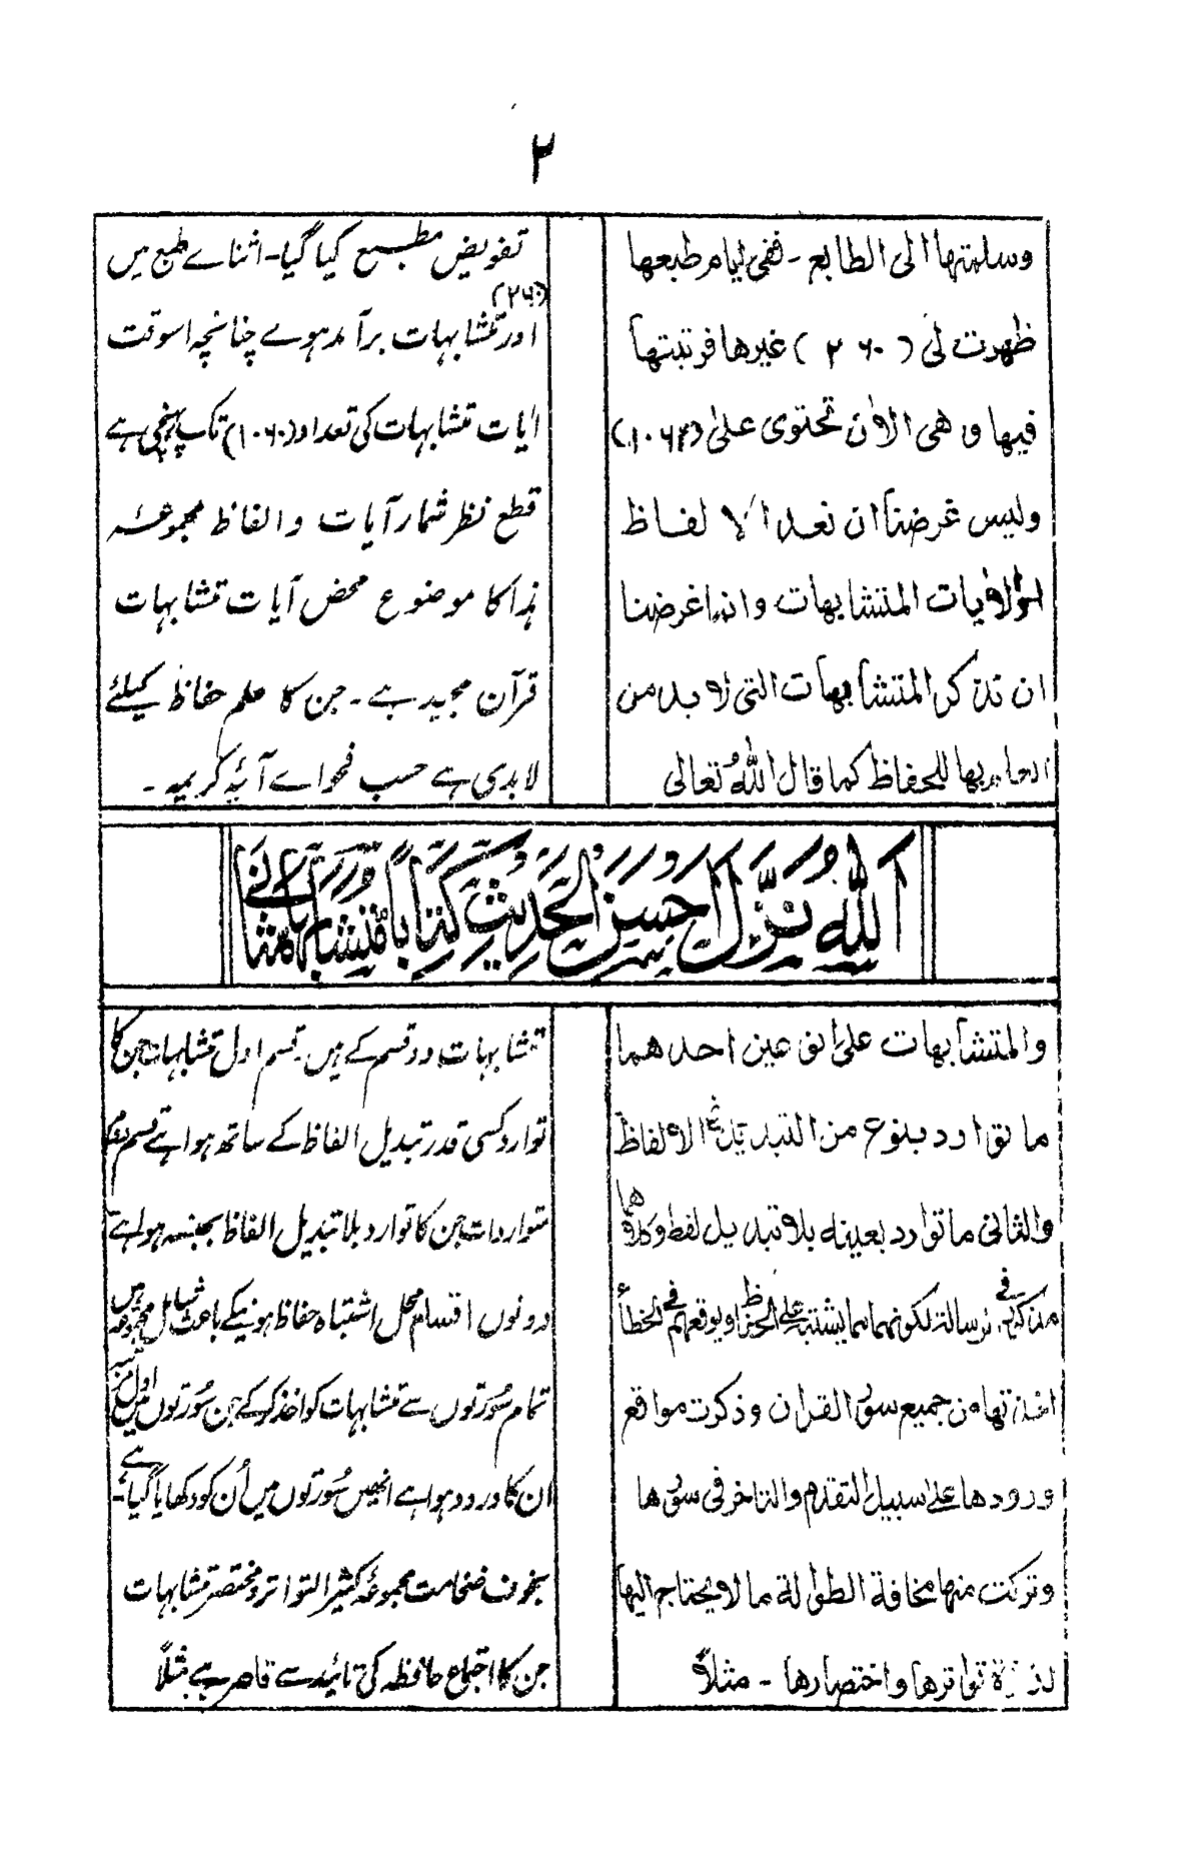 ۲
وسلمتها الی الطابع - ففی ایام طبعها
ظهرت لی (۲۶۰) غیرها فرتبتها
فیها و هی الاٰن تحتوی علیٰ (۱۰۶۲)
ولیس غرضنا ان نعد الا لفاظ
والاٰیات المتشابهات وانما غرضنا
ان نذکر المتشابهات التی لا بد من
بها للحفاظ کما قال اللهُ تعالی
تفویض مطبع کیا گیا - اثناے طبع میں
(۲۶۰)
اور متشابہات برآمد ہوے چنانچہ اسوقت
اٰیات متشابہات کی تعداد (۱۰۶۰) تک پہنچی ہے
قطع نظر شمار آیات والفاظ مجموعۂ
ہذا کا موضوع محض آیات متشابہات
قرآن مجید ہے - جن کا علم حفاظ کیلئے
لابدی ہے حسب فحواے آیۂ کریمہ -
اَللّٰهُ نَزَّلَ اَحْسَنَ الْحَدِیْثِ کِتَابًا مُّتَشَابِهًا مَّثَانِیَ
والمتشابهات علیٰ نوعین احدهما
ما توارد بنوع من التبدیل فی الالفاظ
والثانی ما توارد بعینه بلا تبدیل لفظ وکلاهما
فی رسالة لکونهما مما یشتبه علی الحفاظ ویوقعهم فی الخطأ
اخذتها من جمیع سور القراٰن وذکرت مواقع
ورودها علیٰ سبیل التقدم والتاخر فی سورها
وترکت منها مخافة الطوالة ما لا یحتاج الیها
تواترها واختصارها - مثلاً
متشابہات دو قسم کے ہیں - قسم اول متشابہات جن کا
توارد کسی قدر تبدیل الفاظ کے ساتھ ہوا ہے قسم دوم
متواردات جن کا توارد بلا تبدیل الفاظ بجنسہ ہوا ہے
دونوں اقسام محل اشتباہ حفاظ ہونیکے باعث شامل مجموعہ ہیں
تمام سُورتوں سے متشابہات کو اخذ کر کے جن سُورتوں میں اول
ان کا ورود ہوا ہے انھیں سُورتوں میں اُن کو دکھایا گیا ہے -
بخوف ضخامت مجموعہ کثیر التواتر و مختصر متشابہات
جن کا اجتماع حافظہ کی تائید سے قاصر ہے مثلاً